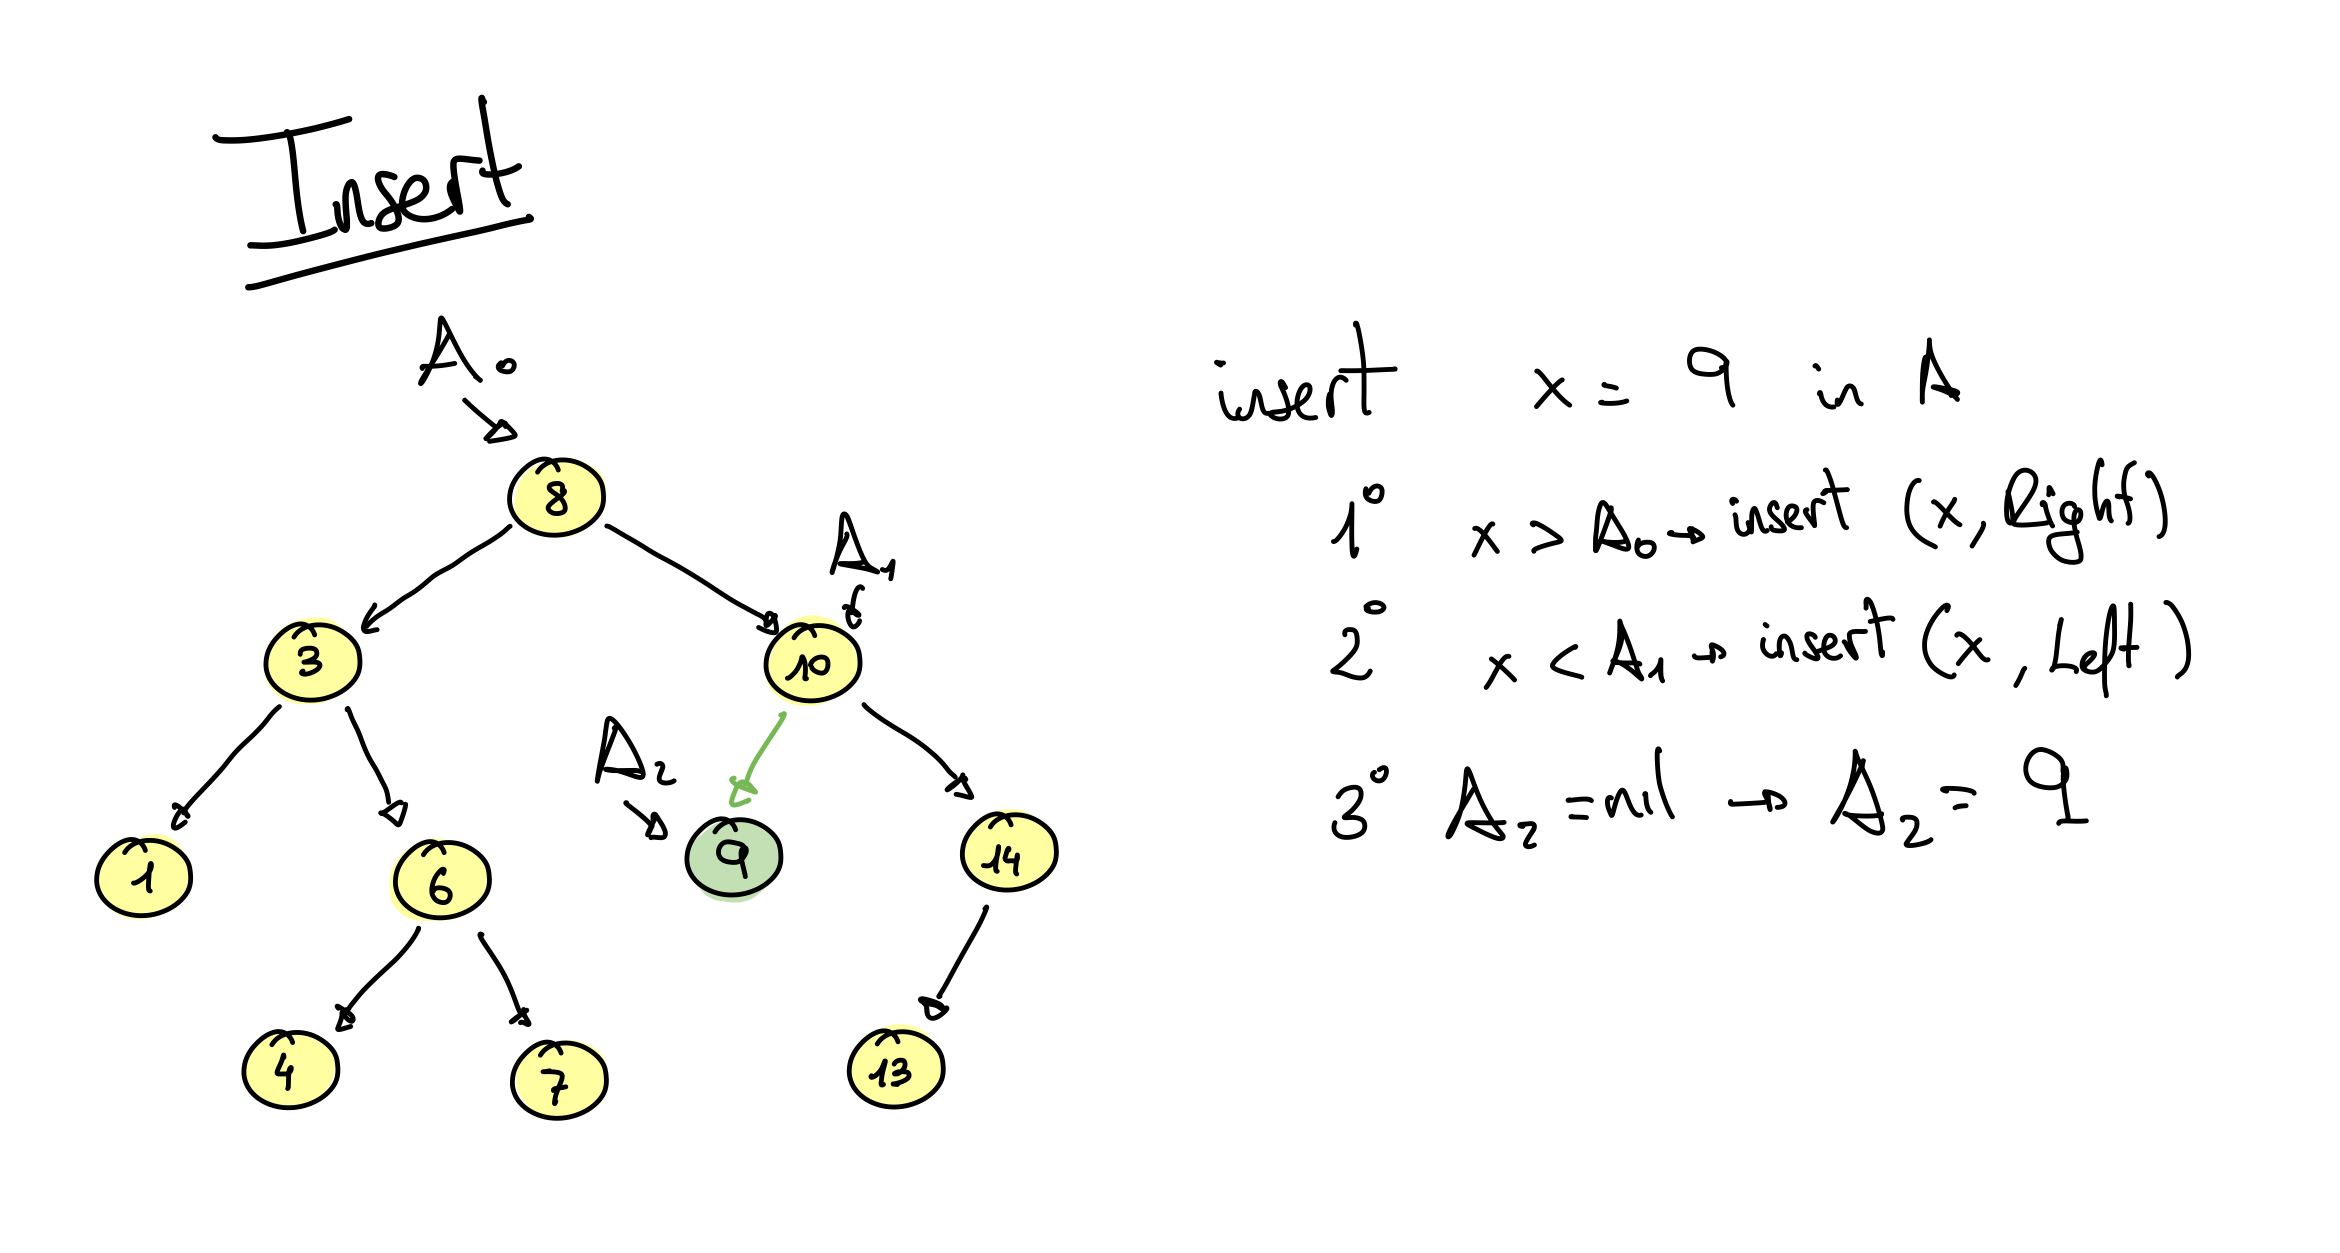 Insert
A₀
8
A₁
3
10
A₂
1
6
9
14
4
7
13
insert x = 9 in A
1° x > A₀ → insert (x, Right)
2° x < A₁ → insert (x, Left)
3° A₂ = nil → A₂ = 9